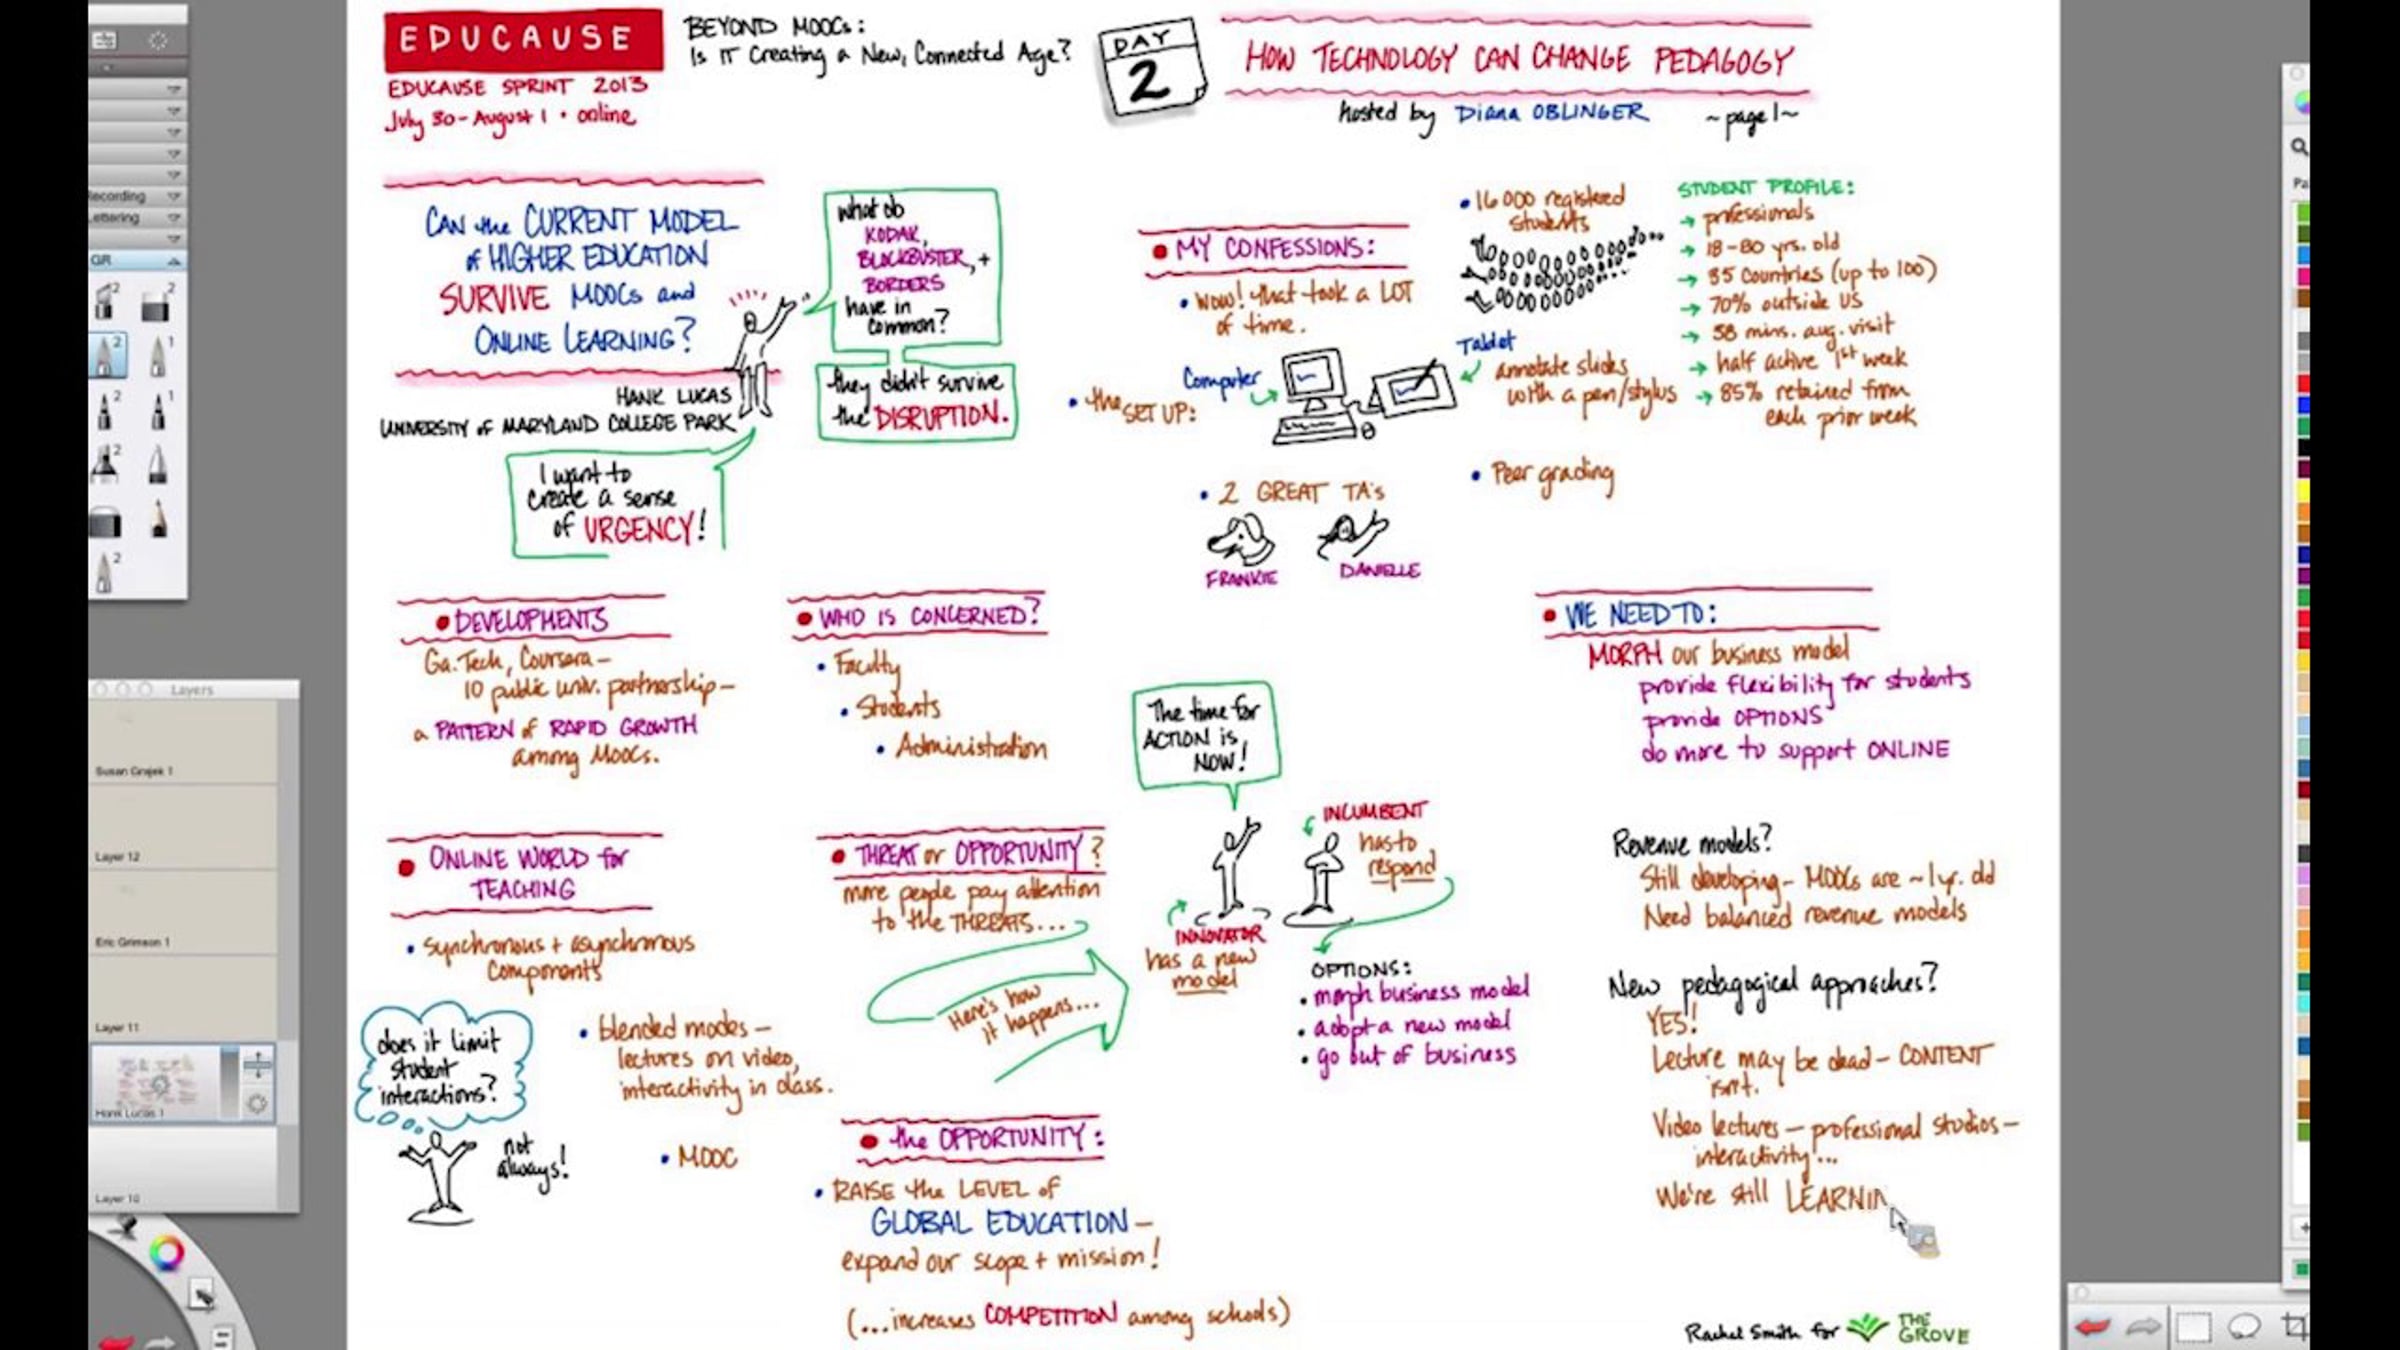 EDUCAUSE
EDUCAUSE SPRINT 2013
July 30 - August 1 • online
BEYOND MOOCs:
Is IT Creating a New, Connected Age?
DAY
2
HOW TECHNOLOGY CAN CHANGE PEDAGOGY
hosted by Diana OBLINGER
~ page 1 ~
CAN the CURRENT MODEL
of HIGHER EDUCATION
SURVIVE MOOCs and
ONLINE LEARNING?
HANK LUCAS
UNIVERSITY of MARYLAND COLLEGE PARK
what do
KODAK,
BLOCKBUSTER, +
BORDERS
have in
common?
they didn't survive
the DISRUPTION.
I want to
create a sense
of URGENCY!
• MY CONFESSIONS:
• WOW! that took a LOT
of time.
• the SET UP:
Computer
Tablet
annotate slides
with a pen/stylus
• 2 GREAT TA's
FRANKIE
DANIELLE
• 16 000 registered
students
• Peer grading
STUDENT PROFILE:
→ professionals
→ 18-80 yrs. old
→ 35 countries (up to 100)
→ 70% outside US
→ 38 mins. avg. visit
→ half active 1st week
→ 85% retained from
each prior week
• DEVELOPMENTS
Ga. Tech, Coursera -
10 public univ. partnership -
a PATTERN of RAPID GROWTH
among MOOCs.
• WHO IS CONCERNED?
• Faculty
• Students
• Administration
• WE NEED TO:
MORPH our business model
provide flexibility for students
provide OPTIONS
do more to support ONLINE
• ONLINE WORLD for
TEACHING
• synchronous + asynchronous
components
does it limit
student
interactions?
not
always!
• blended modes -
lectures on video,
interactivity in class.
• MOOC
• THREAT or OPPORTUNITY?
more people pay attention
to the THREATS...
Here's how
it happens...
The time for
ACTION is
NOW!
INNOVATOR
has a new
model
INCUMBENT
has to
respond
OPTIONS:
• morph business model
• adopt a new model
• go out of business
• the OPPORTUNITY:
• RAISE the LEVEL of
GLOBAL EDUCATION -
expand our scope + mission!
(...increases COMPETITION among schools)
Revenue models?
Still developing - MOOCs are ~1 yr. old
Need balanced revenue models
New pedagogical approaches?
YES!
Lecture may be dead - CONTENT
isn't.
Video lectures - professional studios -
interactivity...
We're still LEARNIN
Rachel Smith for THE GROVE
Recording
Lettering
GR
2
2
2
1
2
1
2
2
2
Layers
Susan Grajek 1
Layer 12
Eric Grimson 1
Layer 11
Hank Lucas 1
Layer 10
Pa